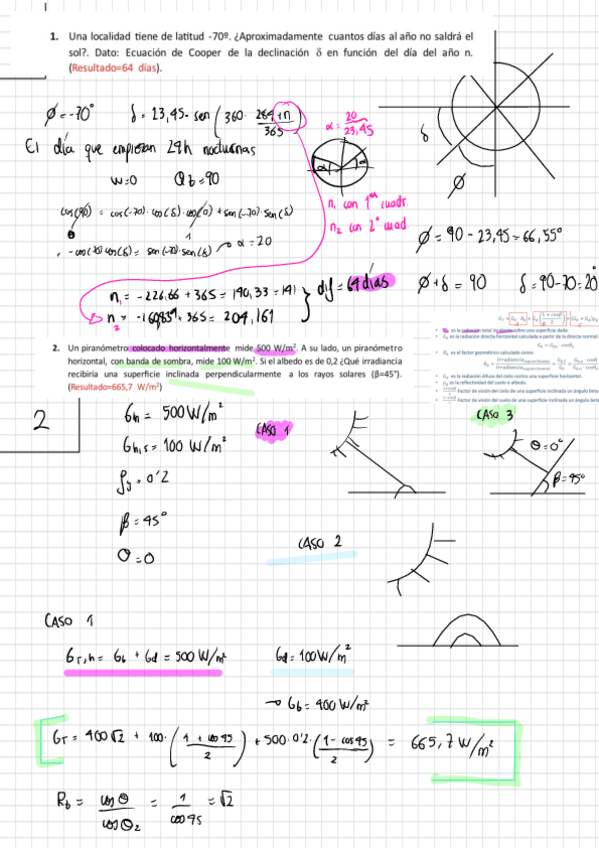 1. Una localidad tiene de latitud -70º. ¿Aproximadamente cuantos días al año no saldrá el
sol?. Dato: Ecuación de Cooper de la declinación δ en función del día del año n.
(Resultado=64 días).
ϕ = -70° δ = 23,45· sen (360 · 284+n / 365)
α = 20 / 23,45
El día que empiezan 24h nocturnas
w=0 θb=90
n, con 1er cuadr.
n2 con 2º cuad.
cos(90) = cos(-70)·cos(δ)·cos(0) + sen(-70)·sen(δ)
0 1
-cos(70)cos(δ) = sen(-70)·sen(δ) → α = 20
δ
ϕ
ϕ = 90 - 23,45 = 66,55°
n1 = -226,66 + 365 = 140,33 = 141
dif = 64 días
ϕ + δ = 90 δ = 90-70 = 20°
2. Un piranómetro colocado horizontalmente mide 500 W/m². A su lado, un piranómetro
horizontal, con banda de sombra, mide 100 W/m². Si el albedo es de 0,2 ¿Qué irradiancia
recibiría una superficie inclinada perpendicularmente a los rayos solares (β=45°).
(Resultado=665,7 W/m²)
2
Gh = 500 W/m²
Gh,s = 100 W/m²
ρg = 0'2
β = 45°
θ = 0
CASO 1
CASO 3
θ = 0°
β = 45°
CASO 2
CASO 1
GT,h = Gb + Gd = 500 W/m²
Gd = 100 W/m²
→ Gb = 400 W/m²
GT = 400√2 + 100· (1 + cos 45 / 2) + 500·0'2· (1 - cos 45 / 2) = 665,7 W/m²
Rb = cos θ / cos θz = 1 / cos 45 = √2